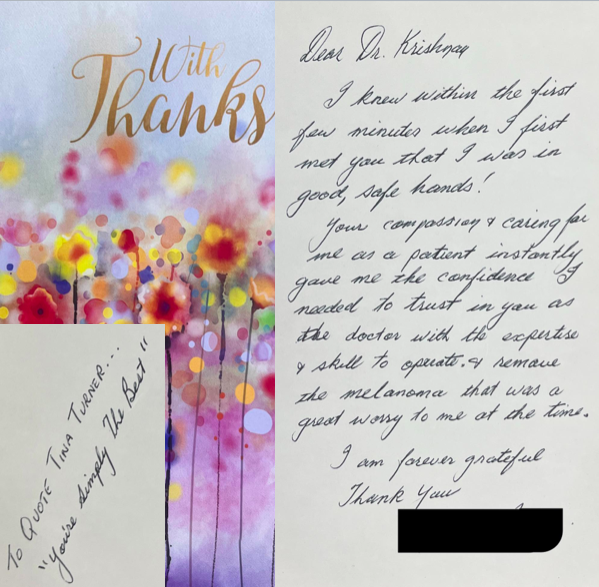 With
Thanks
To Quote Tina Turner...
"You're simply The Best"
Dear Dr. Krishnan
I knew within the first
few minutes when I first
met you that I was in
good, safe hands!
Your compassion & caring for
me as a patient instantly
gave me the confidence I
needed to trust in you as
the doctor with the expertise
& skill to operate. & remove
the melanoma that was a
great worry to me at the time.
I am forever grateful
Thank You